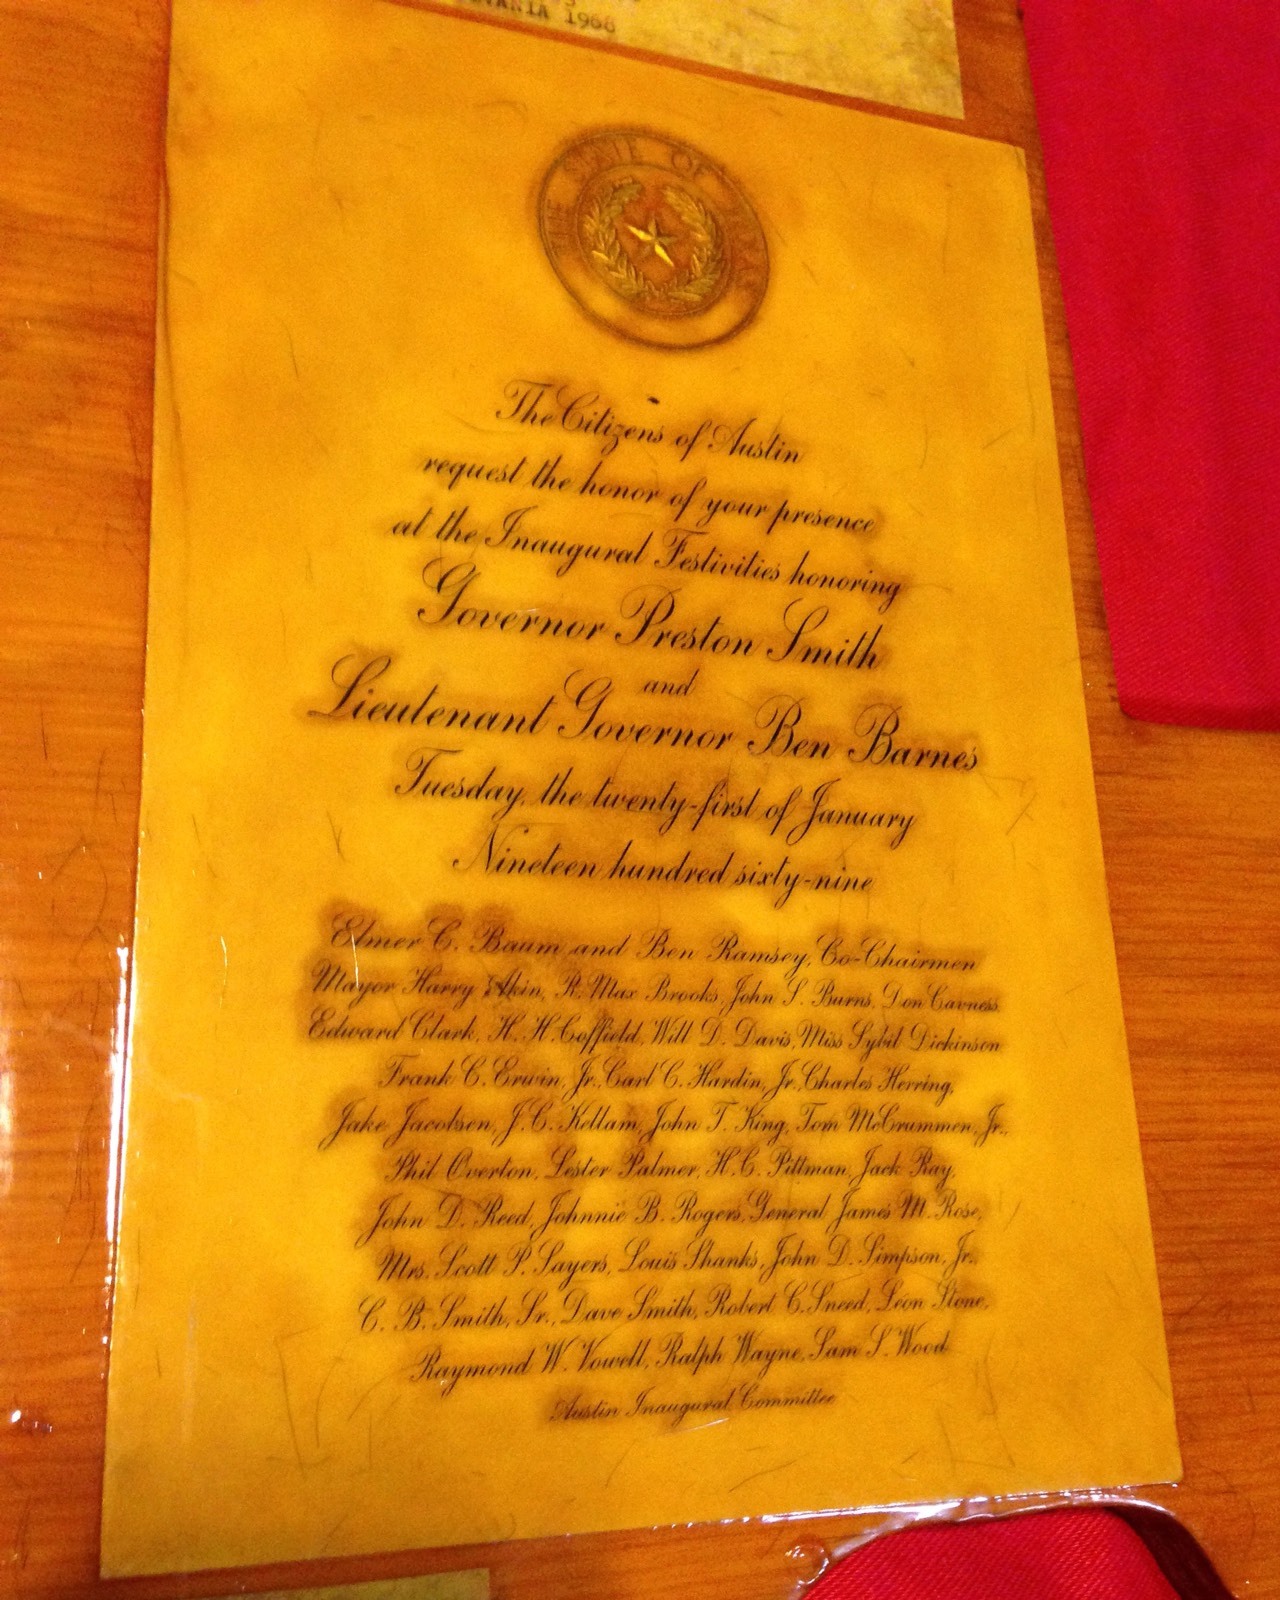 VANIA 1968
THE STATE OF TEXAS
The Citizens of Austin
request the honor of your presence
at the Inaugural Festivities honoring
Governor Preston Smith
and
Lieutenant Governor Ben Barnes
Tuesday, the twenty-first of January
Nineteen hundred sixty-nine
Elmer C. Baum and Ben Ramsey, Co-Chairmen
Mayor Harry Akin, R. Max Brooks, John S. Burns, Don Cavness,
Edward Clark, H. H. Coffield, Will D. Davis, Miss Sybil Dickinson
Frank C. Erwin, Jr., Carl C. Hardin, Jr., Charles Herring,
Jake Jacobsen, J. C. Kellam, John T. King, Tom McCrummen, Jr.,
Phil Overton, Lester Palmer, H. C. Pittman, Jack Ray,
John D. Reed, Johnnie B. Rogers, General James M. Rose,
Mrs. Scott P. Sayers, Louis Shanks, John D. Simpson, Jr.,
C. B. Smith, Sr., Dave Smith, Robert C. Sneed, Leon Stone,
Raymond W. Vowell, Ralph Wayne, Sam S. Wood
Austin Inaugural Committee